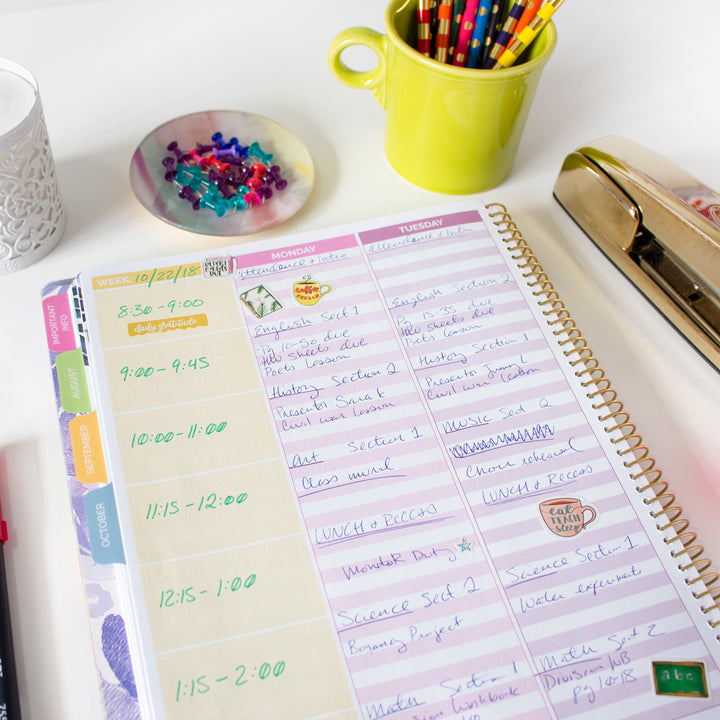 MONDAY
TUESDAY
WEEK: 10/22/18
Attendance + Intro
Attendance + Intro
8:30-9:00
daily gratitude
English Sect 1
Pg 10-50 due
two sheets due
Poets Lesson
English Section 2
Pg 15-35 due
two sheets due
Poets lesson
9:00-9:45
History Section 2
Presentor: Sara K.
Civil war lesson
History Section 1
Presentor Jimmy L
Civil war Lesson
10:00-11:00
Art Section 1
Class mural
MUSIC Sect 2
Choir rehearsal
11:15-12:00
LUNCH & RECESS
Monitor Duty
LUNCH & RECESS
eat
TEACH
sleep
12:15-1:00
Science Sect 2
Boyancy Project
Science Section 1
Water experiment
1:15-2:00
Math Section 1
Workbook
Math Sect 2
Division WB
pg 10-18
abc
IMPORTANT
INFO
AUGUST
SEPTEMBER
OCTOBER